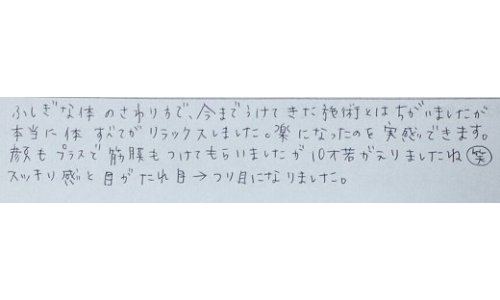 ふしぎな体のさわり方で、今までうけてきた施術とはちがいましたが
本当に体すべてがリラックスしました。楽になったのを実感できます。
顔もプラスで筋膜もつけてもらいましたが10才若がえりましたね(笑)
スッキリ感と目がたれ目→つり目になりました。